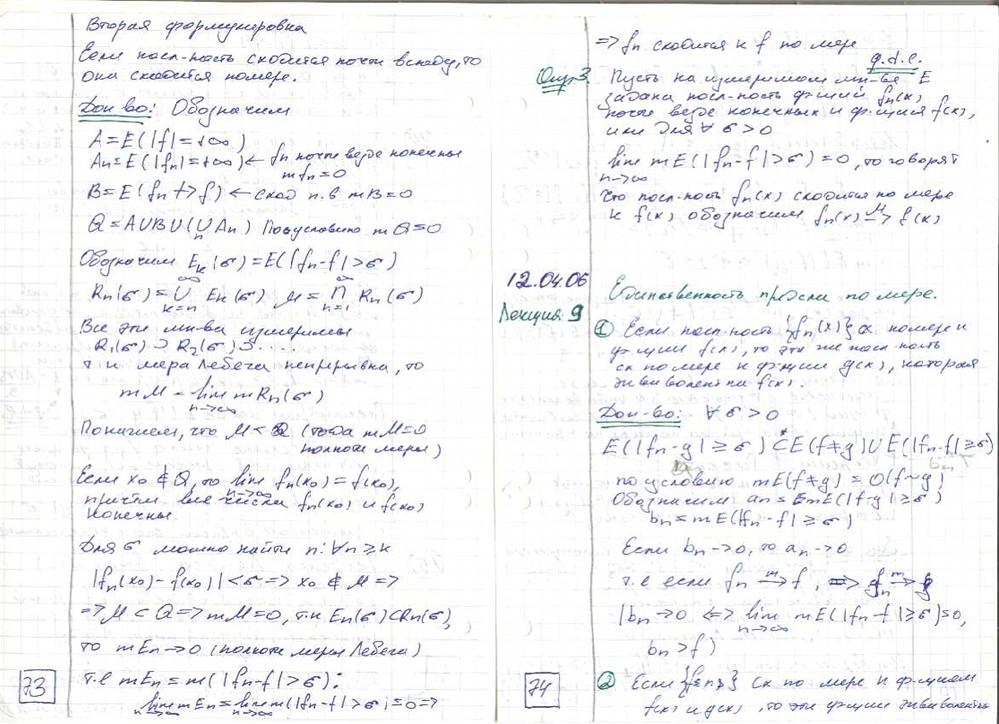 Вторая формулировка
Если посл-ность сходится почти всюду, то
она сходится по мере.
Док-во: Обозначим
A = E(|f| = +∞)
An = E(|fn| = +∞) ← fn почти везде конечны
mfn = 0
B = E(fn ↛ f) ← сход п.в mB = 0
Q = A∪B∪(∪An) По условию mQ = 0
n
Обозначим Eк(σ) = E(|fn-f| > σ)
Rn(σ) = ∪ Eк(σ) M = ∩ Rn(σ)
k=n n=1
Все эти мн-ва измеримы
R1(σ) ⊃ R2(σ) ⊃ ....
т.к мера Лебега непрерывна, то
mM = lim mRn(σ)
n→∞
Покажем, что M < Q (тогда mM=0
полнота меры)
Если x0 ∉ Q, то lim fn(x0) = f(x0),
n→∞
причём все числа fn(x0) и f(x0)
конечны.
Для σ можно найти n: ∀n ≥ k
|fn(x0) - f(x0)| < σ => x0 ∉ M =>
=> M ⊂ Q => mM = 0, т.к En(σ) ⊂ Rn(σ),
то mEn → 0 (полнота меры Лебега)
73
т.е mEn = m(|fn-f| > σ):
lim mEn = lim m(|fn-f| > σ) = 0 =>
n→∞ n→∞
=> fn сходится к f по мере
q.d.e.
Опр 3 Пусть на измеримом мн-ве E
задана посл-ность ф-ций fn(x)
почти везде конечных и ф-ция f(x),
или для ∀ σ > 0
lim mE(|fn-f| > σ) = 0, то говорят
n→∞
что посл-ность fn(x) сходится по мере
к f(x) обозначим fn(x) → f(x)
12.04.06
Единственность предела по мере.
Лекция 9
① Если посл-ность {fn(x)} сх по мере к
ф-ции f(x), то эта же посл-ность
сх по мере к ф-ции g(x), которая
эквивалентна f(x).
Док-во: ∀ σ > 0
E(|fn-g| ≥ σ) ⊂ E(f≠g) ∪ E(|fn-f| ≥ σ)
по условию mE(f≠g) = 0 (f~g)
Обозначим an = mE(|f-g| ≥ σ)
bn = mE(|fn-f| ≥ σ)
Если bn → 0, то an → 0
т.е если fn →m f, => fn →m g
|bn → 0 <=> lim mE(|fn-f| ≥ σ) = 0,
n→∞
bn > f)
74
② Если {fn} сх по мере к ф-циям
f(x) и g(x), то эти ф-ции эквивалентны